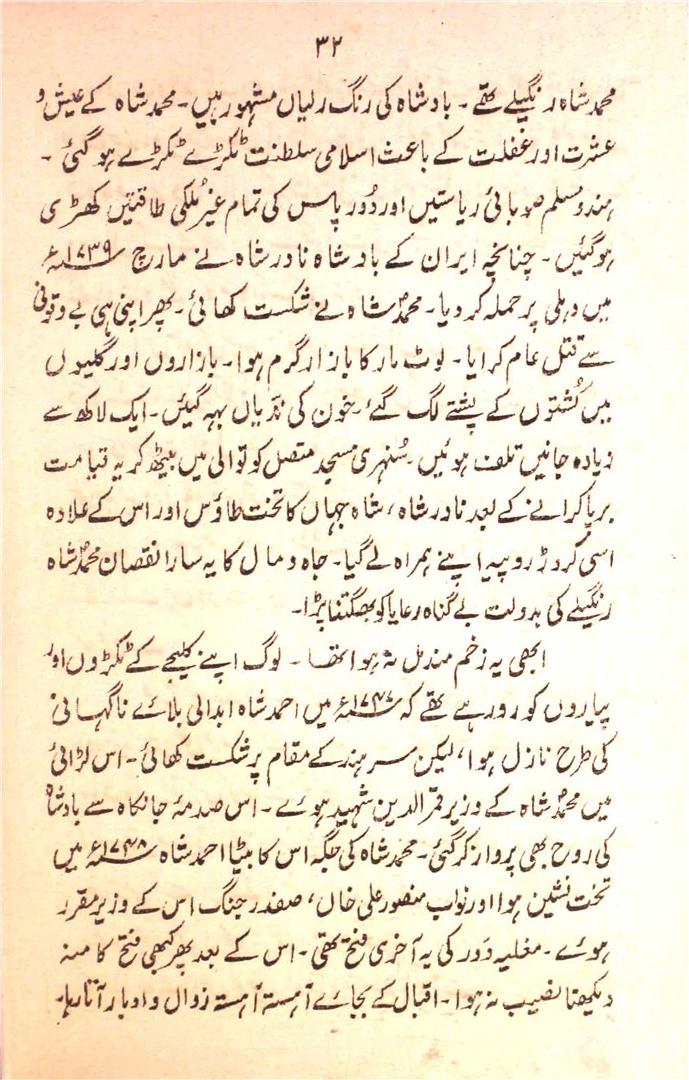 ۳۲
محمد شاہ رنگیلے تھے ۔ بادشاہ کی رنگ رلیاں مشہور ہیں۔ محمد شاہ کے عیش و
عشرت اور غفلت کے باعث اسلامی سلطنت ٹکڑے ٹکڑے ہو گئی ۔
ہندو مسلم صوبائی ریاستیں اور دُور پاس کی تمام غیر مُلکی طاقتیں کھڑی
ہو گئیں۔ چنانچہ ایران کے بادشاہ نادر شاہ نے مارچ ۱۷۳۹ء
میں دہلی پر حملہ کر دیا۔ محمدؐ شاہ نے شکست کھائی۔ پھر اپنی ہی بے وقوفی
سے قتل عام کرایا۔ لوٹ مار کا بازار گرم ہوا۔ بازاروں اور گلیوں
میں کُشتوں کے پشتے لگ گئے ۔ خون کی ندّیاں بہہ گئیں۔ ایک لاکھ سے
زیادہ جانیں تلف ہوئیں۔ سُنہری مسجد متصل کوتوالی میں بیٹھ کر یہ قیامت
برپا کرانے کے بعد نادر شاہ، شاہ جہاں کا تخت طاؤس اور اس کے علاوہ
اسی کروڑ روپیہ اپنے ہمراہ لے گیا۔ جاہ و مال کا یہ سارا نقصان محمدؐ شاہ
رنگیلے کی بدولت بے گناہ رعایا کو بھگتنا پڑا۔
ابھی یہ زخم مندمل نہ ہوا تھا ۔ لوگ اپنے کلیجے کے ٹکڑوں اور
پیاروں کو رو رہے تھے کہ ۱۷۴۷ء میں احمد شاہ ابدالی بلائے ناگہانی
کی طرح نازل ہوا، لیکن سرہند کے مقام پر شکست کھائی۔ اس لڑائی
میں محمدؐ شاہ کے وزیر قمرالدین شہید ہوئے ۔ اس صدمۂ جانکاہ سے بادشاہ
کی روح بھی پرواز کر گئی۔ محمد شاہ کی جگہ اس کا بیٹا احمد شاہ ۱۷۴۸ء میں
تخت نشین ہوا اور نواب منصور علی خاں، صفدر جنگ اس کے وزیر مقرر
ہوئے ۔ مغلیہ دَور کی یہ آخری فتح تھی۔ اس کے بعد پھر کبھی فتح کا منہ
دیکھنا نصیب نہ ہوا۔ اقبال کے بجائے آہستہ آہستہ زوال و ادبار آتا رہا۔